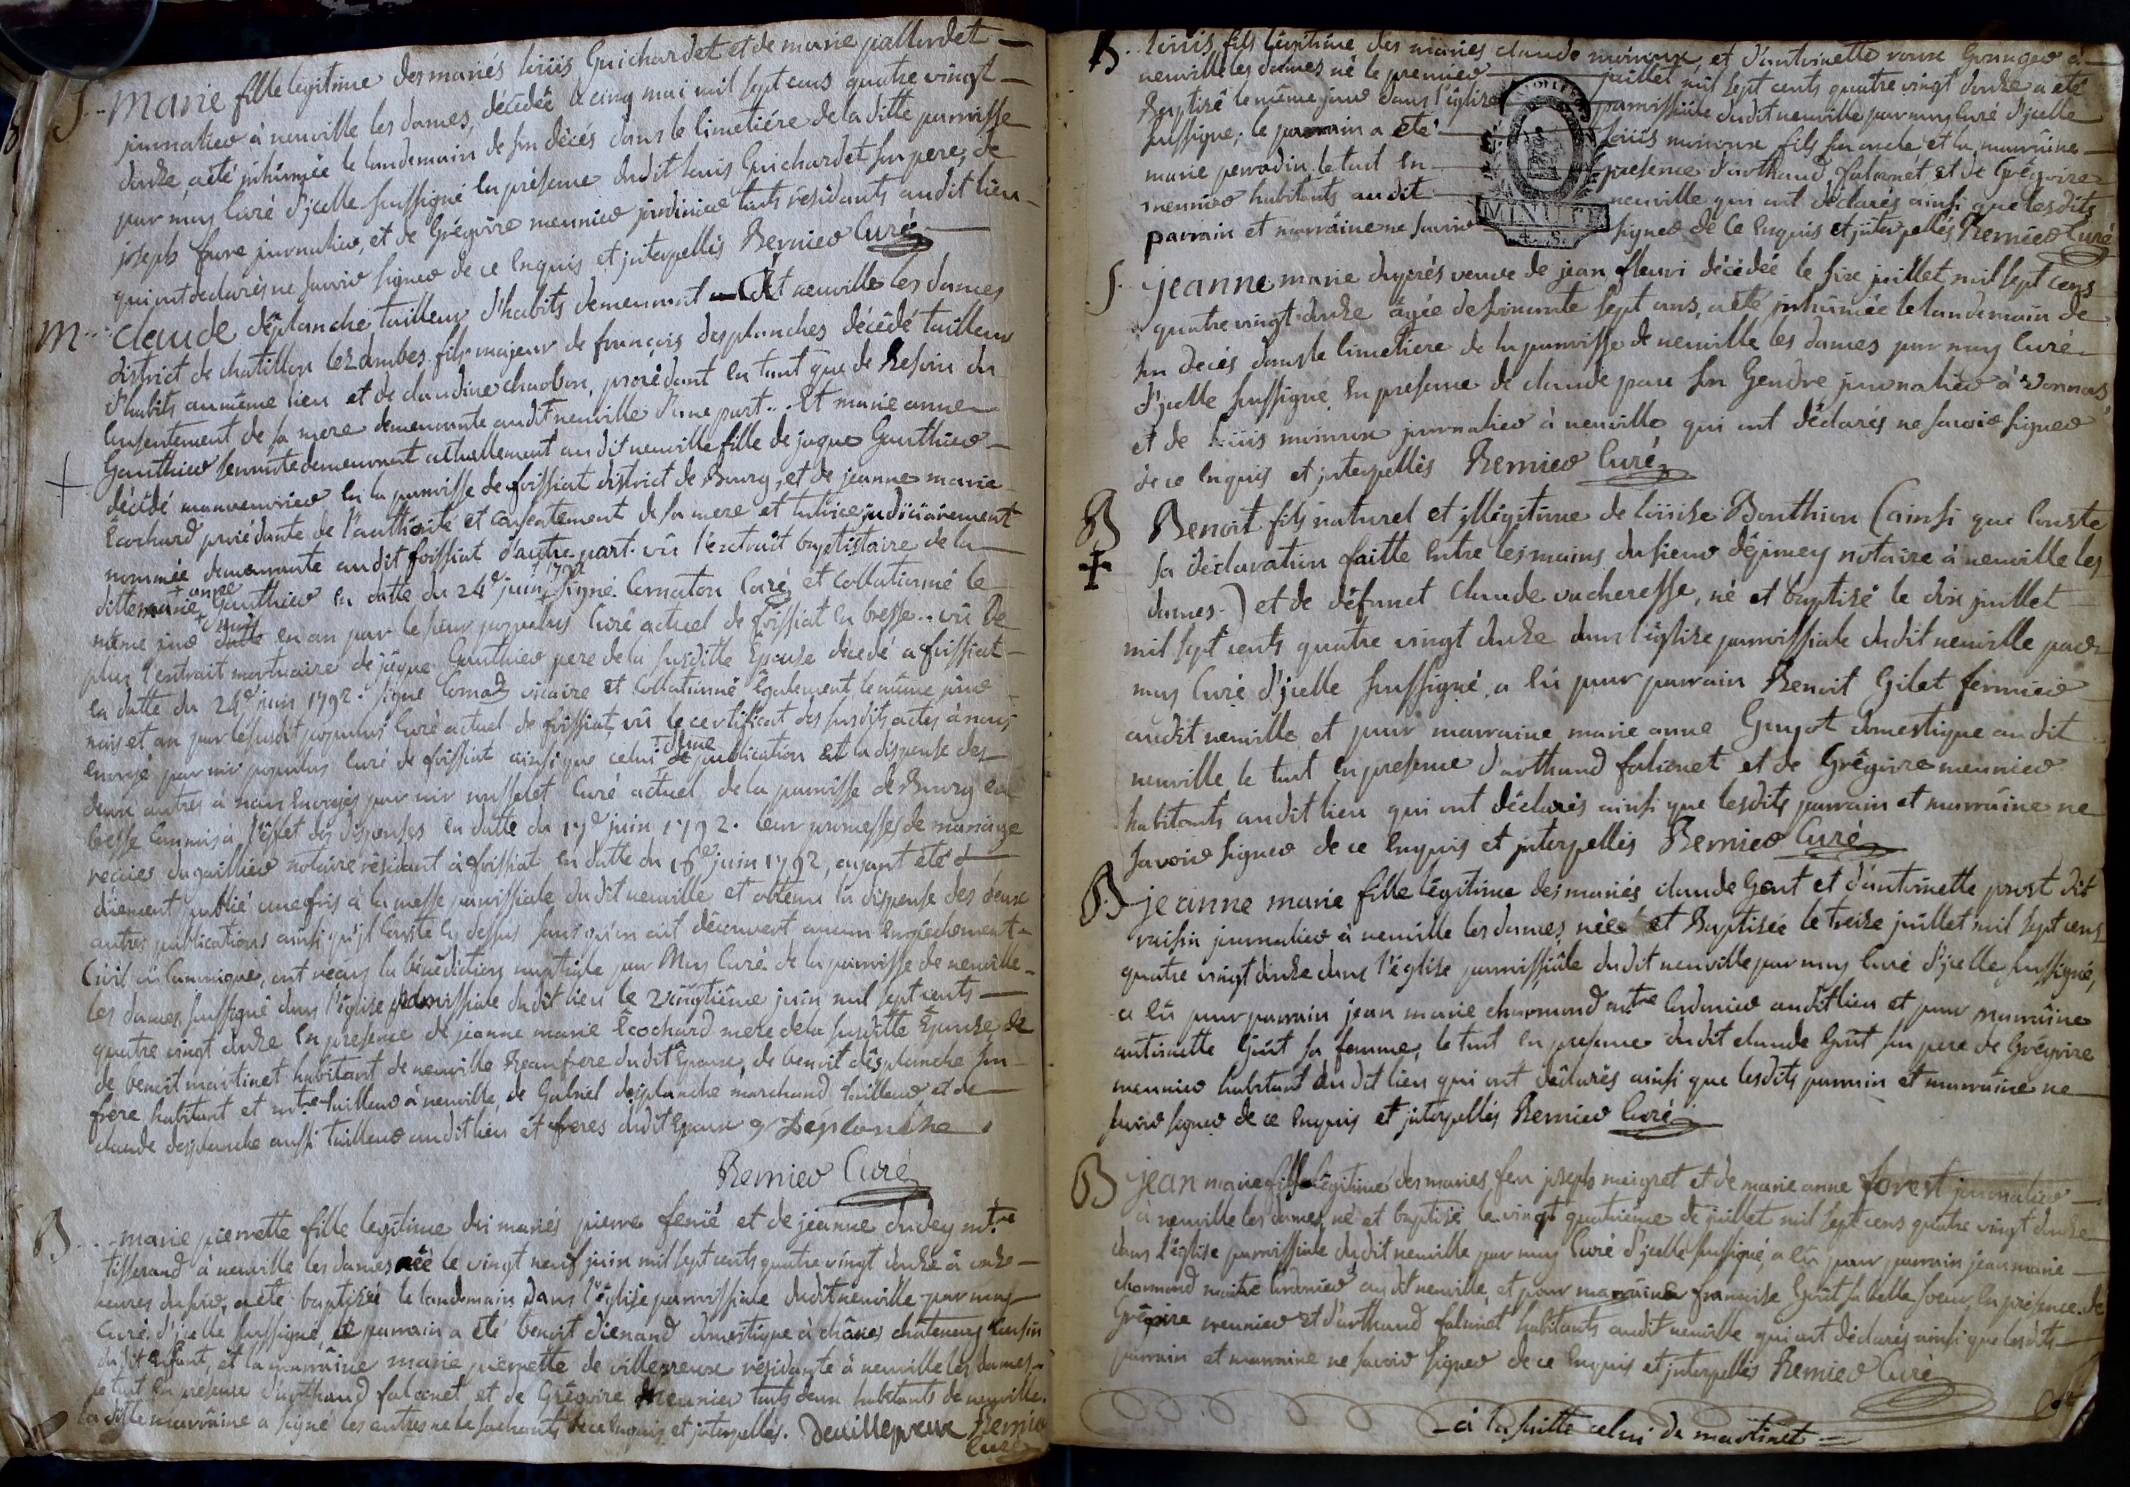 S. Marie fille legitime des mariés loüis Guichardet et de marie pallordet
journalier à neuville les dames, décédée le cinq mai mil sept cens quatre vingt
douze, a été inhumée le landemain de son décés dans le cimetiére de la ditte parroisse
par nous Curé d'jcelle soussigné en présence dudit louis Guichardet son pere, de
joseph favre journalier, et de Grégoire meunier jardinier touts résidants audit lieu
qui ont declarés ne savoir signer de ce enquis et interpellés Bernier Curé
M. Claude déplanche tailleur d'habits demeurant audit neuville les dames
district de chatillon les dombes fils majeur de françois desplanches décédé tailleur
d'habits au même lieu et de claudine charbon, procédant en tant que de besoin du
consentement de sa mere demeurante audit neuville d'une part. Et marie anne
Gauthier servante demeurant actuellement audit neuville fille de jaque Gauthier
décédé manoeuvrier en la parroisse de foissiat district de Bourg, et de jeanne marie
Ecochard procédante de l'authorité et consentement de sa mere et tutrice judiciairement
nommée demeurante audit foissiat d'autre part. vû l'extrait baptistaire de la
ditte marie anne Gauthier en datte du 24e juin 1792 signé Comaton Curé et collationné le
même jour en an par le sieur populus Curé actuel de foissiat en bresse. vû de
plus l'extrait mortuaire de jaque Gauthier pere de la susditte Epouse décédé a foissiat
en datte du 24e juin 1792. signé vicaire et collationné également le même jour
mois et an par le susdit populus Curé actuel de foissiat, vû le certificat des susdits actes à nous
envoyé par mr populus curé de foissiat ainsi que celui d'une publication et la dispense des
deux autres à nous envoyés par mr Curé actuel de la parroisse de Bourg en
bresse Commis à l'effet des dispenses en datte du 17e juin 1792. leur promesses de mariage
recües notaire résidant à foissiat en datte du 16e juin 1792, ayant été
düement publié une fois à la messe parroissiale dudit neuville et obtenu la dispense des deux
autres publications ainsi qu'il Conste cy dessus sans qu'on ait découvert aucun empêchement
Civil ou Canonique, ont reçus la bénédiction nuptiale par Nous Curé de la parroisse de neuville
les dames soussigné dans l'église parroissiale dudit lieu le vingtiéme juin mil sept cents
quatre vingt douze en presence de jeanne marie Ecochard mere de la susditte Epouse de
de benoit martinet habitant de neuville Beaufrere dudit Epoux, de benoit désplanche son
frere habitant et mtre tailleur à neuville, de Gabriel desplanche marchand tailleur et de
claude desplanche aussi tailleur audit lieu et freres dudit Epoux g Deplanche
Bernier Curé
B. marie pierrette fille legitime des mariés pierre ferrié et de jeanne dudey mtre
tisserand à neuville les dames née le vingt neuf juin mil sept cents quatre vingt douze à onze
heures du soir, a été baptisée le landemain dans l'église parroissiale dudit neuville par nous
Curé d'jcelle soussigné, le parrain a été benoit dienand domestique à chânes châtenay Cousin
dudit enfant, et la marraine marie pierrette de villepreux résidante à neuville les dames
le tout en presence d'arthaud falconet et de Grégoire Meunier touts deux habitants de neuville.
la ditte marraine a signé les autres ne le sachants de ce enquis et interpellés. Devillepreux Bernier
Curé
B. loüis fils légitime des mariés claude moiroux et d'antoinette Granger à
neuville les dames né le premier juillet mil sept cents quatre vingt douze a été
Baptisé le même jour dans l'église parroissiale dudit neuville par nous Curé d'jcelle
soussigné; le parrain a été loüis moiroux fils et la marraine
marie perrodin le tout en presence d'arthaud falconet et de Grégoire
meunier habitants audit neuville qui ont déclarés ainsi que lesdits
parrain et marraine ne savoir signer de ce enquis et interpellés Bernier Curé
MINUTE
4. S.
S. jeanne marie duprés veuve de jean fleuri décédée le six juillet mil sept cens
quatre vingt douze âgée de soixante sept ans, a été inhumée le landemain de
son decés dans le cimetiere de la parroisse de neuville les dames par nous Curé
d'jcelle soussigné en presence de claude son Gendre journalier à Vonnas
et de loüis moiroux journalier à neuville qui ont déclarés ne savoir signer
de ce enquis et interpellés Bernier Curé
B Benoit fils naturel et jllégitime de loüise Bouthion (ainsi que Conste
sa déclaration faitte entre les mains du sieur déjuney notaire à neuville les
dames.) et de défunct Claude vacheresse, né et baptisé le dix juillet
mil sept cents quatre vingt douze dans l'église parroissiale dudit neuville par
nous Curé d'jcelle soussigné, a eü pour parrain Benoit Gilet fermier
audit neuville et pour marraine marie anne Guyot domestique audit
neuville le tout en presence d'arthaud falconet et de Grégoire meunier
habitants audit lieu qui ont déclarés ainsi que lesdits parrain et marraine ne
savoir signer de ce enquis et interpellés Bernier Curé
B jeanne marie fille légitime des mariés claude Gout et d'antoinette prost dit
raisin journalier à neuville les dames née et Baptisée le treize juillet mil sept cens
quatre vingt douze dans l'église parroissiale dudit neuville par nous Curé d'jcelle soussigné,
a eü pour parrain jean marie charmond mtre Cordonier audit lieu et pour marraine
antoinette Goût sa femme, le tout en presence dudit claude Goût son pere de Grégoire
meunier habitant dudit lieu qui ont déclarés ainsi que lesdits parrain et marraine ne
savoir signer de ce enquis et interpellés Bernier Curé
B jean marie fils légitime des maries feu joseph maigret et de marie anne forest journalier
à neuville les dames, né et baptisé le vingt quatriéme de juillet mil sept cens quatre vingt douze
dans l'église parroissiale dudit neuville par nous Curé d'jcelle soussigné, a eü pour parrain jean marie
charmond maitre Cordonier audit neuville, et pour marraine francoise Goût sa belle soeur, en présence de
Grégoire meunier et d'arthaud falconet habitants audit neuville qui ont déclarés ainsi que lesdits
parrain et marraine ne savoir signer de ce enquis et interpellés Bernier Curé
à la suitte celui de martinet